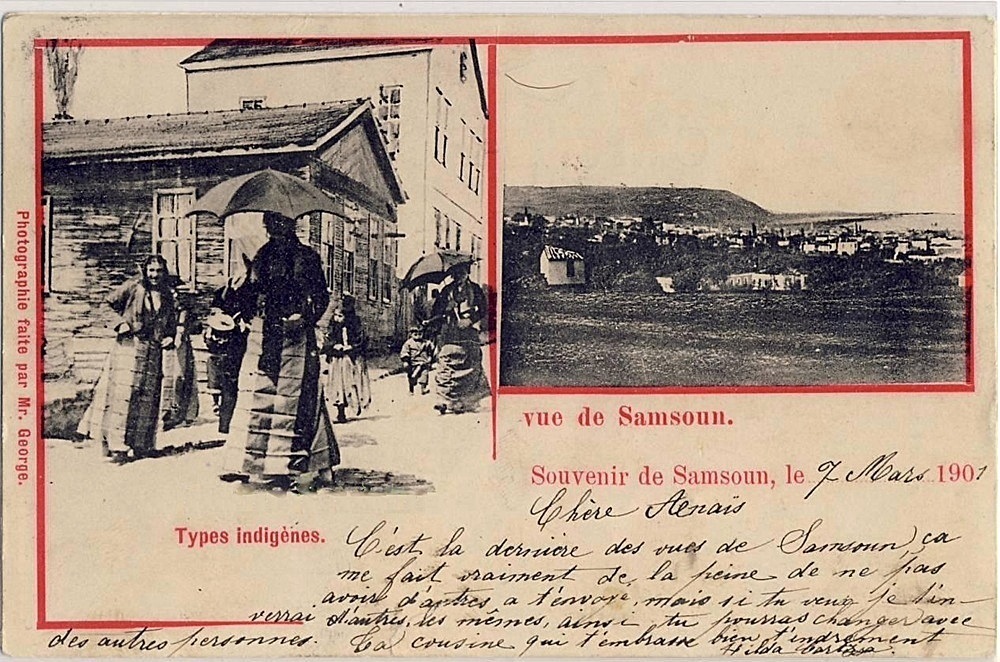 Photographie faite par Mr. George.
vue de Samsoun.
Souvenir de Samsoun, le 7 Mars 1901
Types indigènes.
Chère Aenaïs
C'est la dernière des vues de Samsoun, ça
me fait vraiment de la peine de ne pas
avoir d'autres a t'envoyé, mais si tu veux je t'en-
verrai d'autres, les mêmes, ainsi tu pourras changer avec
des autres personnes. Ta cousine qui t'embrasse bien
Hilda